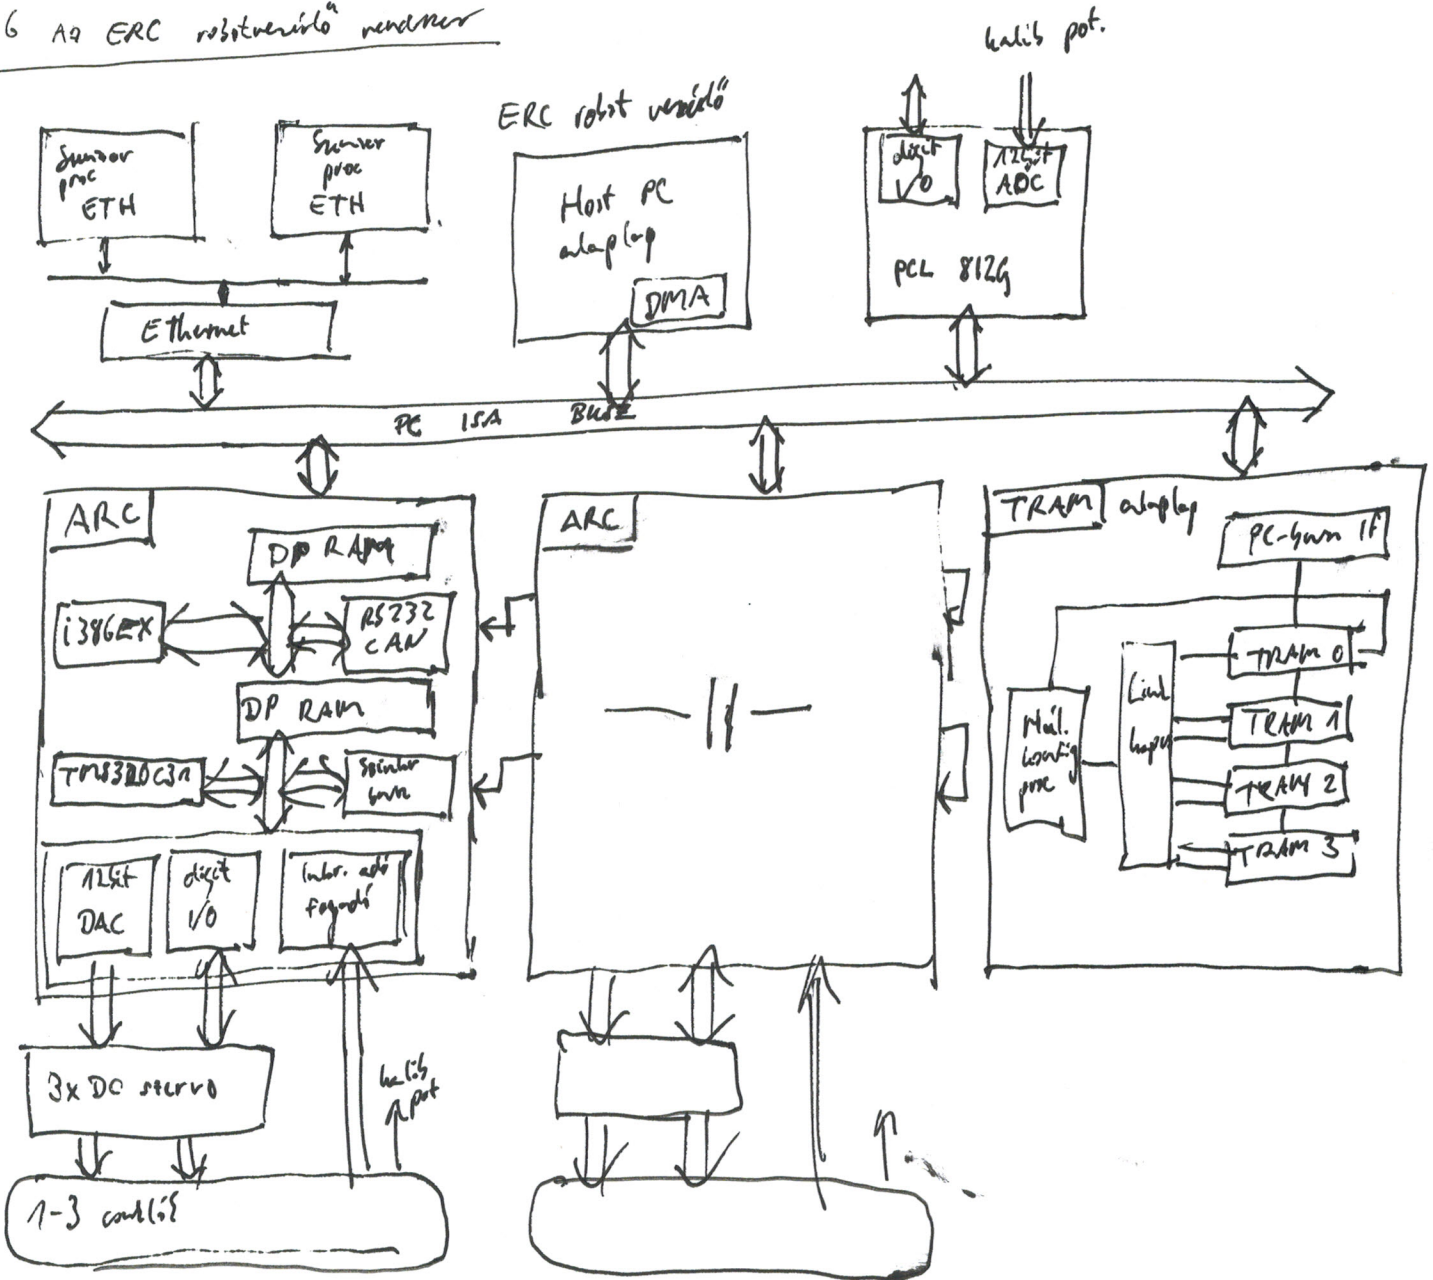 6 Az ERC robotvezérlő rendszer
kalib pot.
Szenzor
proc
ETH
Szenzor
proc
ETH
Ethernet
ERC robot vezérlő
Host PC
alaplap
DMA
digit
I/O
12bit
ADC
PCL 812G
PC ISA BUSZ
ARC
DP RAM
i386EX
RS232
CAN
DP RAM
TMS320C31
12bit
DAC
digit
I/O
adó
fogadó
3x DC szervo
kalib
pot
1-3 csukló
ARC
— || —
TRAM alaplap
PC-busz IF
TRAM 0
TRAM 1
TRAM 2
TRAM 3
Link
kapu
konfig
proc